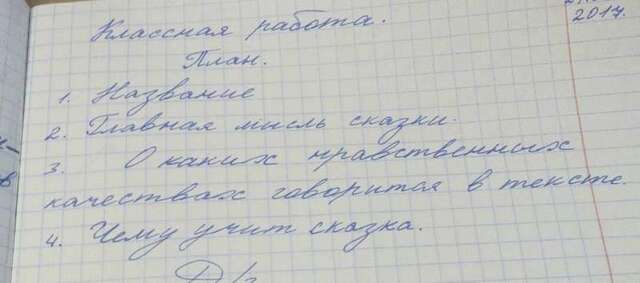 2017.
Классная работа.
План.
1. Название
2. Главная мысль сказки.
3. О каких нравственных
качествах говорится в тексте.
4. Чему учит сказка.